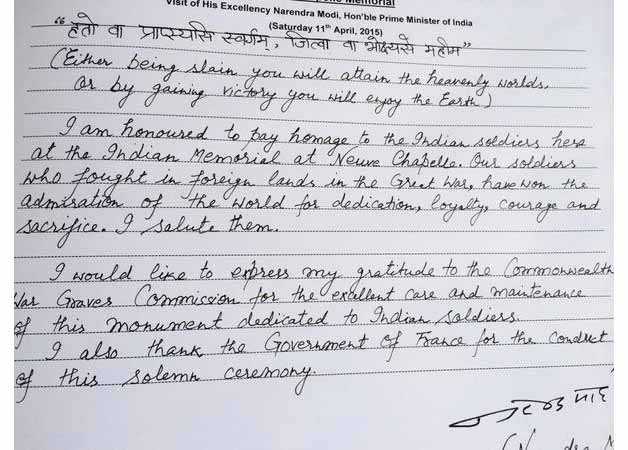 Memorial
Visit of His Excellency Narendra Modi, Hon'ble Prime Minister of India
(Saturday 11th April, 2015)
“हतो वा प्राप्स्यसि स्वर्गम्, जित्वा वा भोक्ष्यसे महीम”
(Either being slain you will attain the heavenly worlds,
Or by gaining victory you will enjoy the Earth)
I am honoured to pay homage to the Indian soldiers here
at the Indian Memorial at Neuve Chapelle. Our soldiers
who fought in foreign lands in the Great War, have won the
admiration of the world for dedication, loyalty, courage and
sacrifice. I salute them.
I would like to express my gratitude to the Commonwealth
War Graves Commission for the excellent care and maintenance
of this monument dedicated to Indian soldiers.
I also thank the Government of France for the conduct
of this solemn ceremony.